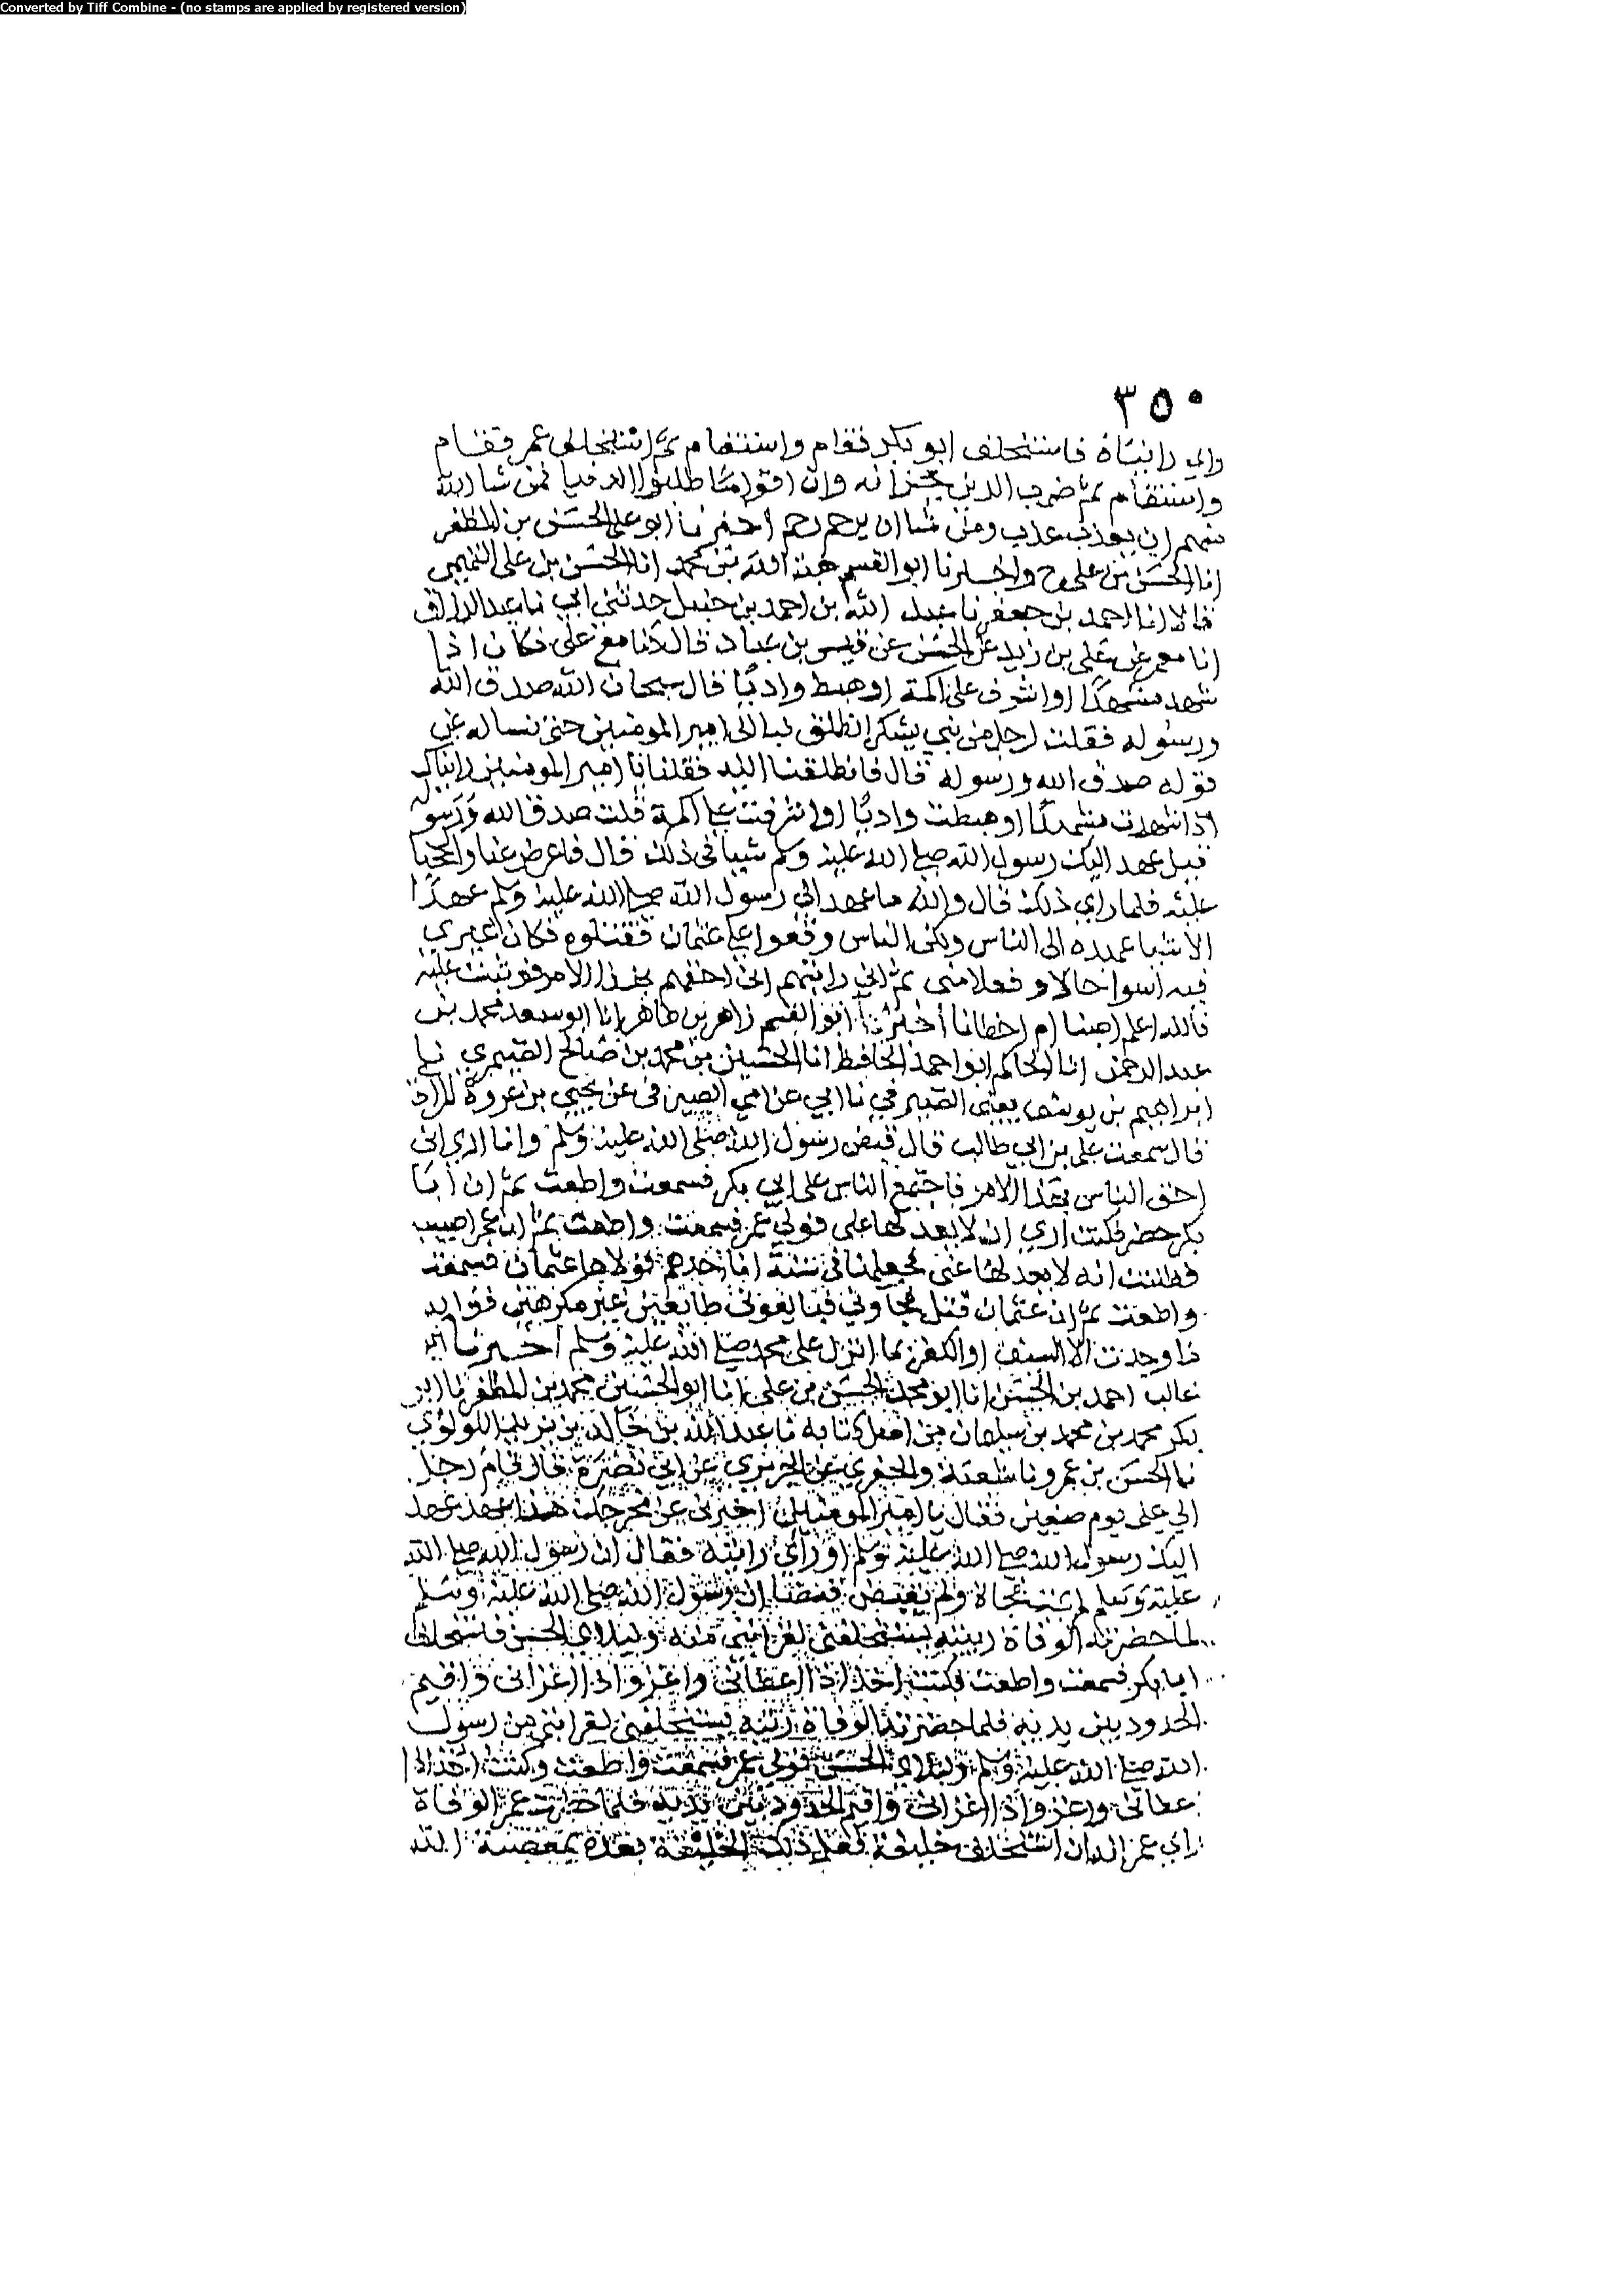 Converted by Tiff Combine - (no stamps are applied by registered version)
٣٥٠
راي رايناه فاستخلف ابو بكر فقام واستقام ثم استخلف عمر فقام
واستقام ثم ضرب الدين بجرانه وان اقواما طلبوا الدنيا فمن شا الله
منهم ان يعذب عذب ومن شا ان يرحم رحم اخبرنا ابو علي الحسن بن المظفر
انا الحسن بن علي ح واخبرنا ابو القسم هبة الله بن محمد انا الحسن بن علي التميمي
قالا انا احمد بن جعفر نا عبد الله بن احمد بن حنبل حدثني ابي نا عبد الرزاق
انا معمر عن علي بن زيد عن الحسن عن قيس بن عباد قال كنا مع علي فكان اذا
شهد مشهدا او اشرف على اكمة او هبط واديا قال سبحان الله صدق الله
ورسوله فقلت لرجل من بني يشكر انطلق بنا الى امير المومنين حتى نساله عن
قوله صدق الله ورسوله قال فانطلقنا اليه فقلنا يا امير المومنين رايناك
اذا شهدت مشهدا او هبطت واديا او اشرفت على اكمة قلت صدق الله ورسوله
فهل عهد اليك رسول الله صلى الله عليه وسلم شيا في ذلك قال فاعرض عنا والححنا
عليه فلما راي ذلك قال والله ما عهد الي رسول الله صلى الله عليه وسلم عهدا
الا شيا عهده الى الناس ولكن الناس وقعوا على عثمان فقتلوه فكان غيري
فيه اسوا حالا وفعلا مني ثم اني رايتهم اني احقهم بهذا الامر فوثبت عليه
فالله اعلم اصبنا ام اخطانا اخبرنا ابو القسم زاهر بن طاهر انا ابو سعد محمد بن
عبد الرحمن انا الحاكم ابو احمد الحافظ انا الحسين بن محمد بن صالح الصيمري نا
ابراهيم بن يوسف يعني الصيرفي نا ابي عن امي الصيرفي عن يحيى بن عروة المرادي
قال سمعت علي بن ابي طالب قال قبض رسول الله صلى الله عليه وسلم وانا اري اني
احق الناس بهذا الامر فاجتمع الناس على ابي بكر فسمعت واطعت ثم ان ابا
بكر حضر فكنت اري ان لا يعدلها عني فولي عمر فسمعت واطعت ثم ان عمر اصيب
فظننت انه لا يعدلها عني فجعلها في ستة انا احدهم فولاها عثمان فسمعت
واطعت ثم ان عثمان قتل فجاوني فبايعوني طايعين غير مكرهين فوالله
ما وجدت الا السيف او الكفر بما انزل على محمد صلى الله عليه وسلم اخبرنا ابو
غالب احمد بن الحسن انا ابو محمد الحسن بن علي انا ابو الحسين محمد بن المظفر نا ابو
بكر محمد بن محمد بن سليمان من اصل كتابه نا عبد الله بن خالد بن يزيد اللولوي
نا الحسن بن عمرو نا شعبة عن الجريري عن ابي نضرة قال قام رجل
الي علي يوم صفين فقال يا امير المومنين اخبرني عن مخرجك هذا اعهد عهد
اليك رسول الله صلى الله عليه وسلم او راي رايته فقال ان رسول الله صلى الله
عليه وسلم لم يمت فجاة ولم يقبض قبضا ان رسول الله صلى الله عليه وسلم
لما حضرته الوفاة رايته يستخلفني لقرابتي منه ولبلاي الحسن فاستخلف
ابا بكر فسمعت واطعت فكنت اخذ اذا اعطاني واغزو اذا اغزاني واقيم
الحدود بين يديه فلما حضرته الوفاة رايته يستخلفني لقرابتي من رسول
الله صلى الله عليه وسلم ولبلاي الحسن فولي عمر فسمعت واطعت وكنت اخذ اذا
عطاني واغزو اذا اغزاني واقيم الحدود بين يديه فلما حضرت عمر الوفاة
راي عمر انه ان استخلف خليفة فعمل ذلك الخليفة بعده بمعصية الله